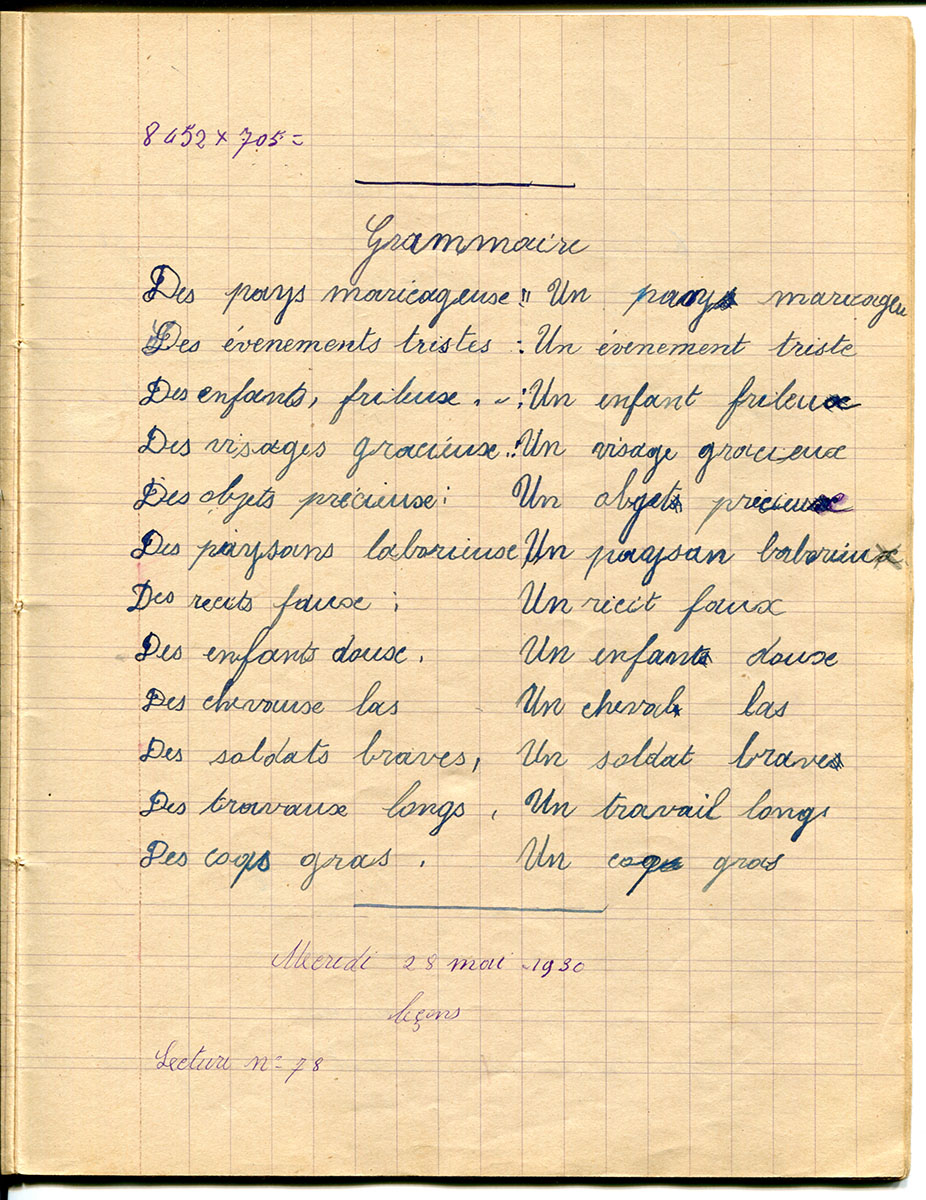 8452 x 705 =
Grammaire
Des pays maricageuse : Un pays maricageu
Des évenements tristes : Un évenement triste
Des enfants, frileux . - : Un enfant frileux
Des visages gracieuse : Un visage gracieux
Des objets précieuse : Un objet précieux
Des paysans laborieuse, Un paysan laborieux
Des recits faux ; Un récit faux
Des enfants doux . Un enfant doux
Des chevaux las Un cheval las
Des soldats braves, Un soldat brave
Des travaux longs , Un travail longs
Des coqs gras . Un coq gras
Mecredi 28 mai 1930
leçons
Lecture n° 78